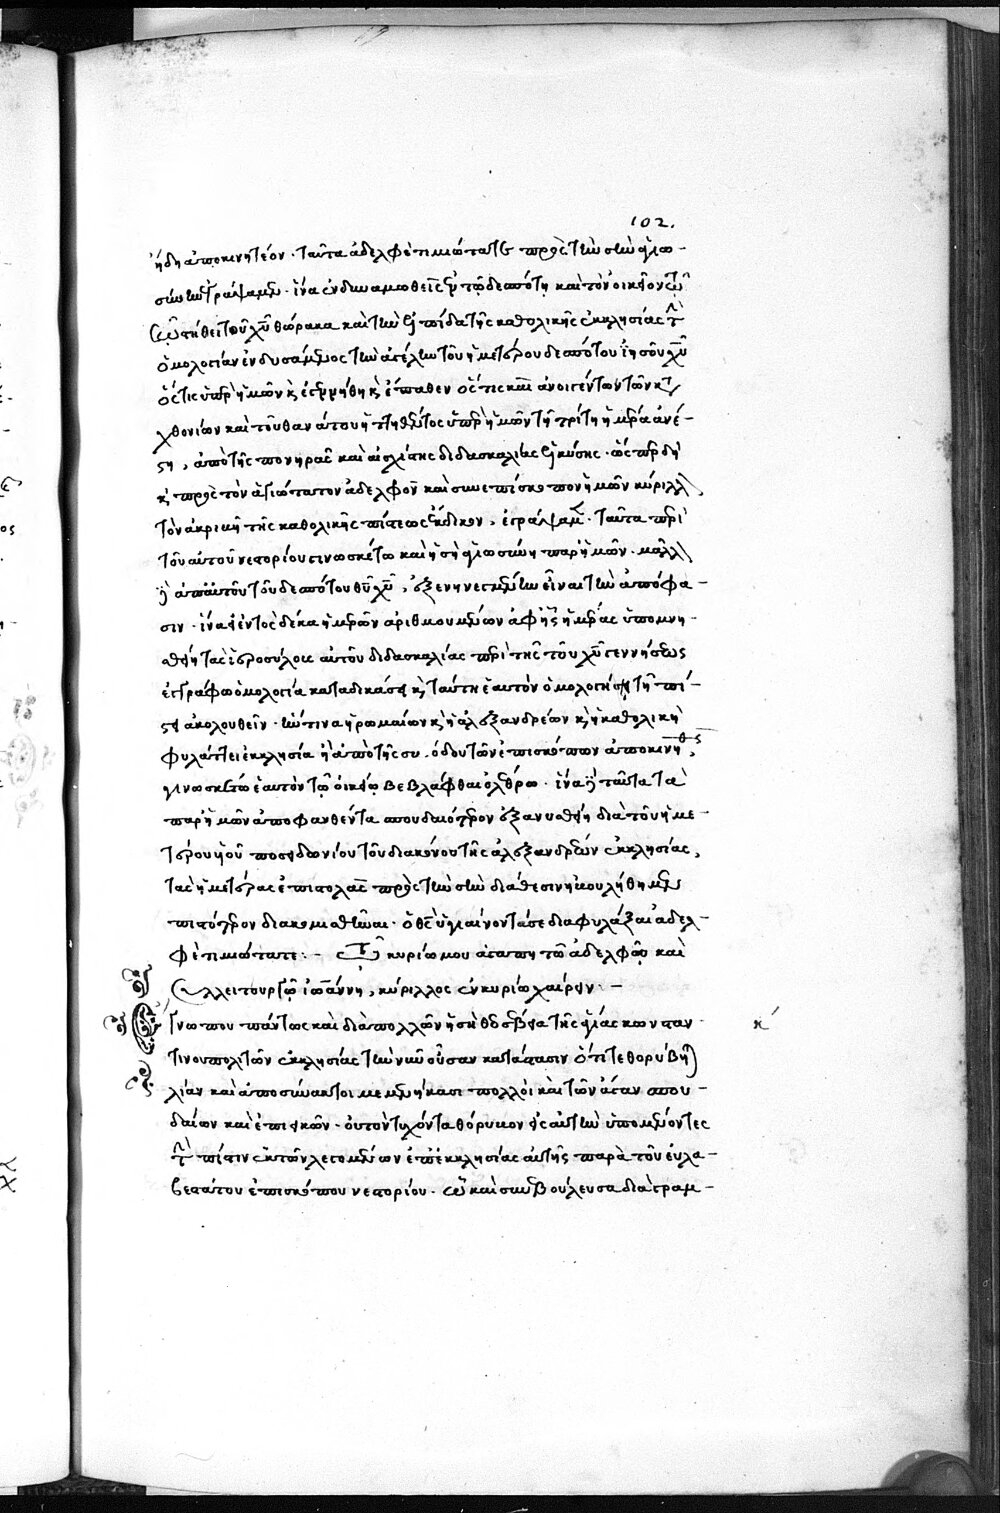 102.
ἤδη ἀποκινητέον · ταῦτα ἀδελφὲ τιμιώτατε πρὸς τὴν σὴν ἁγιω-
σύνην γράψαμεν · ἵνα ἐνδυναμωθεὶς ἐν τῷ δεσπότῃ καὶ τὸν οἰκεῖον τῷ
στήθει τοῦ χῦ θώρακα καὶ τὴν ἐλπίδα τῆς καθολικῆς ἐκκλησίας τὴν
ὁμολογίαν ἐνδυσάμενος τὴν ἀγέλην τοῦ ἡμετέρου δεσπότου ἰησοῦ χῦ
ὅστις ὑπὲρ ἡμῶν κ ἐγεννήθη κ ἔπαθεν ὅστις καὶ ἀνοιγέντων τῶν κατα
χθονίων καὶ τοῦ θανάτου ἡττηθέντος ὑπὲρ ἡμῶν τῇ τρίτῃ ἡμέρα ἀνέ-
στη, ἀπὸ τῆς πονηρᾶς καὶ αἰσχίστης διδασκαλίας ἑλκύσῃς · ὥσπερ δὴ
κ πρὸς τὸν ἁγιώτατον ἀδελφὸν καὶ συνεπίσκοπον ἡμῶν κύριλλ
τὸν ἀκριβῆ τῆς καθολικῆς πίστεως ἔκδικον, ἐγράψαμεν · ταῦτα περὶ
τοῦ αὐτοῦ νεστορίου γινωσκέτω καὶ ἡ σὴ ἁγιωσύνη παρ ἡμῶν · μᾶλλ
δὲ ἀπ αὐτοῦ τοῦ δεσπότου θῦ χῦ, ἐξενηνεγμένην εἶναι τὴν ἀπόφα-
σιν · ἵνα ἐντὸς δέκα ἡμερῶν ἀριθμουμένων ἀφ ἧς ἡμέρας ὑπομνη-
σθῇ τὰς ἱεροσύλους αὐτοῦ διδασκαλίας περὶ τῆς τοῦ χῦ γεννήσεως
ἐγγράφω ὁμολογία καταδικάσει κ ταύτη ἑαυτὸν ὁμολογήσῃ τῇ πί-
στει ἀκολουθεῖν · ἥντινα ἡ ρωμαίων κ ἡ ἀλεξανδρέων κ ἡ καθολικὴ
φυλάττει ἐκκλησία ἢ ἀπὸ τῆς συνόδου τῶν ἐπισκόπων ἀποκινηθεὶς,
γινωσκέτω ἑαυτὸν τῷ οἰκείῳ βεβλάφθαι ὀλέθρω · ἵνα δὲ ταῦτα τὰ
παρ ἡμῶν ἀποφανθέντα σπουδαιότερον ἐξανυσθῇ διὰ τοῦ ἡμε-
τέρου υἱοῦ ποσειδωνίου τοῦ διακόνου τῆς ἀλεξανδρέων ἐκκλησίας,
τὰς ἡμετέρας ἐπιστολὰς πρὸς τὴν σὴν διάθεσιν ἠβουλήθημεν
πιστότερον διακομισθῆναι · ὁ θς ὑγιαίνοντά σε διαφυλάξαι ἀδελ-
φὲ τιμιώτατε : - Τῷ κυρίω μου ἀγαπητῶ ἀδελφῷ καὶ
συλλειτουργῷ ἰωάννη, κύριλλος ἐν κυρίω χαίρειν · -
Ἔγνω που πάντως καὶ διὰ πολλῶν ἡ σὴ θεοσέβεια τῆς ἁγίας κωνσταν
τινουπολιτῶν ἐκκλησίας τὴν νῦν οὖσαν κατάστασιν ὅτι τεθορύβη
λίαν καὶ ἀποσύνακτοι μεμενήκασι πολλοὶ καὶ τῶν ἄγαν σπου-
δαίων καὶ ἐπιεικῶν · οὐ τὸν τυχόντα θόρυβον εἰς αὐτὴν ὑπομένοντες
τὴν πίστιν ἐκ τῶν λεγομένων ἐπ ἐκκλησίας αὐτῆς παρὰ τοῦ εὐλα-
βεστάτου ἐπισκόπου νεστορίου · ᾧ καὶ συνεβούλευσα διὰ γραμ-
κ´